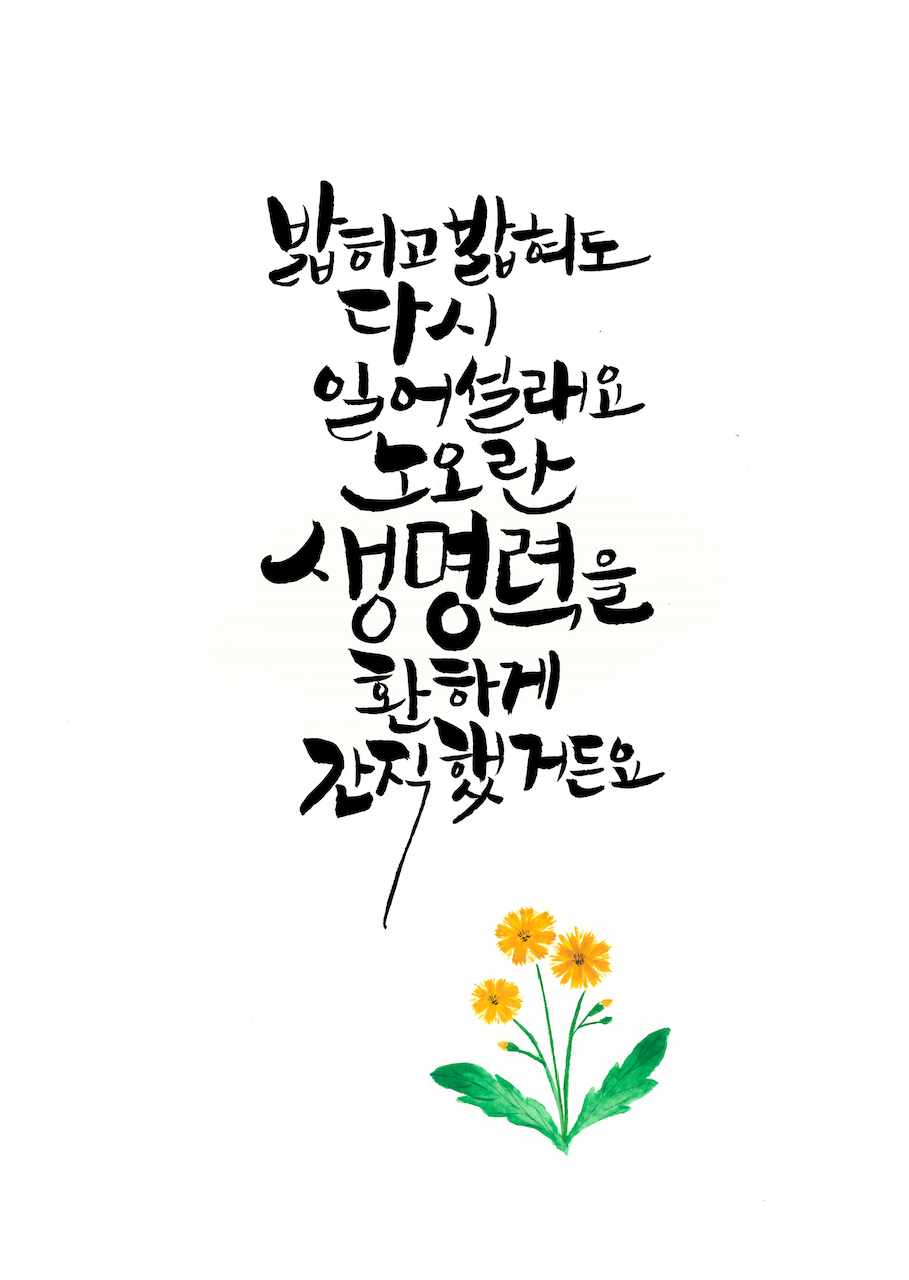 밟히고 밟혀도
다시
일어설래요
노오란
생명력을
환하게
간직했거든요